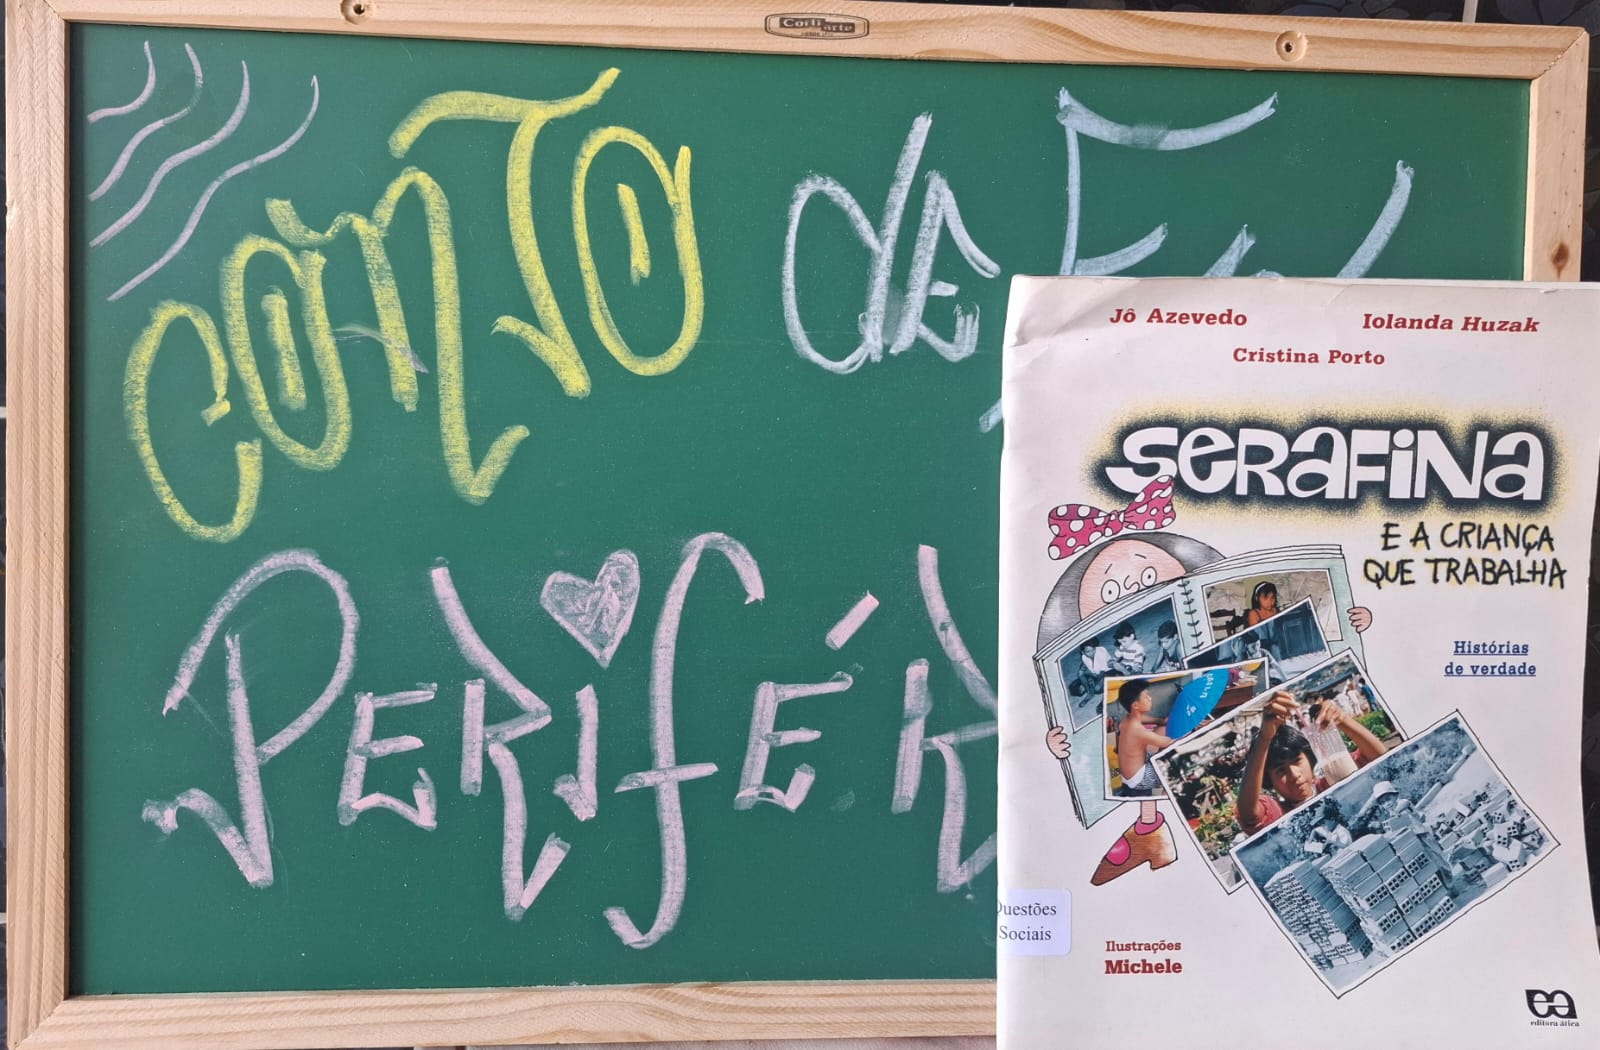 Corti arte
CONTO de
PERIFÉR
Jô Azevedo Iolanda Huzak
Cristina Porto
SERAFINA
E A CRIANÇA
QUE TRABALHA
Histórias
de verdade
Questões
Sociais
Ilustrações
Michele
ea
editora ática